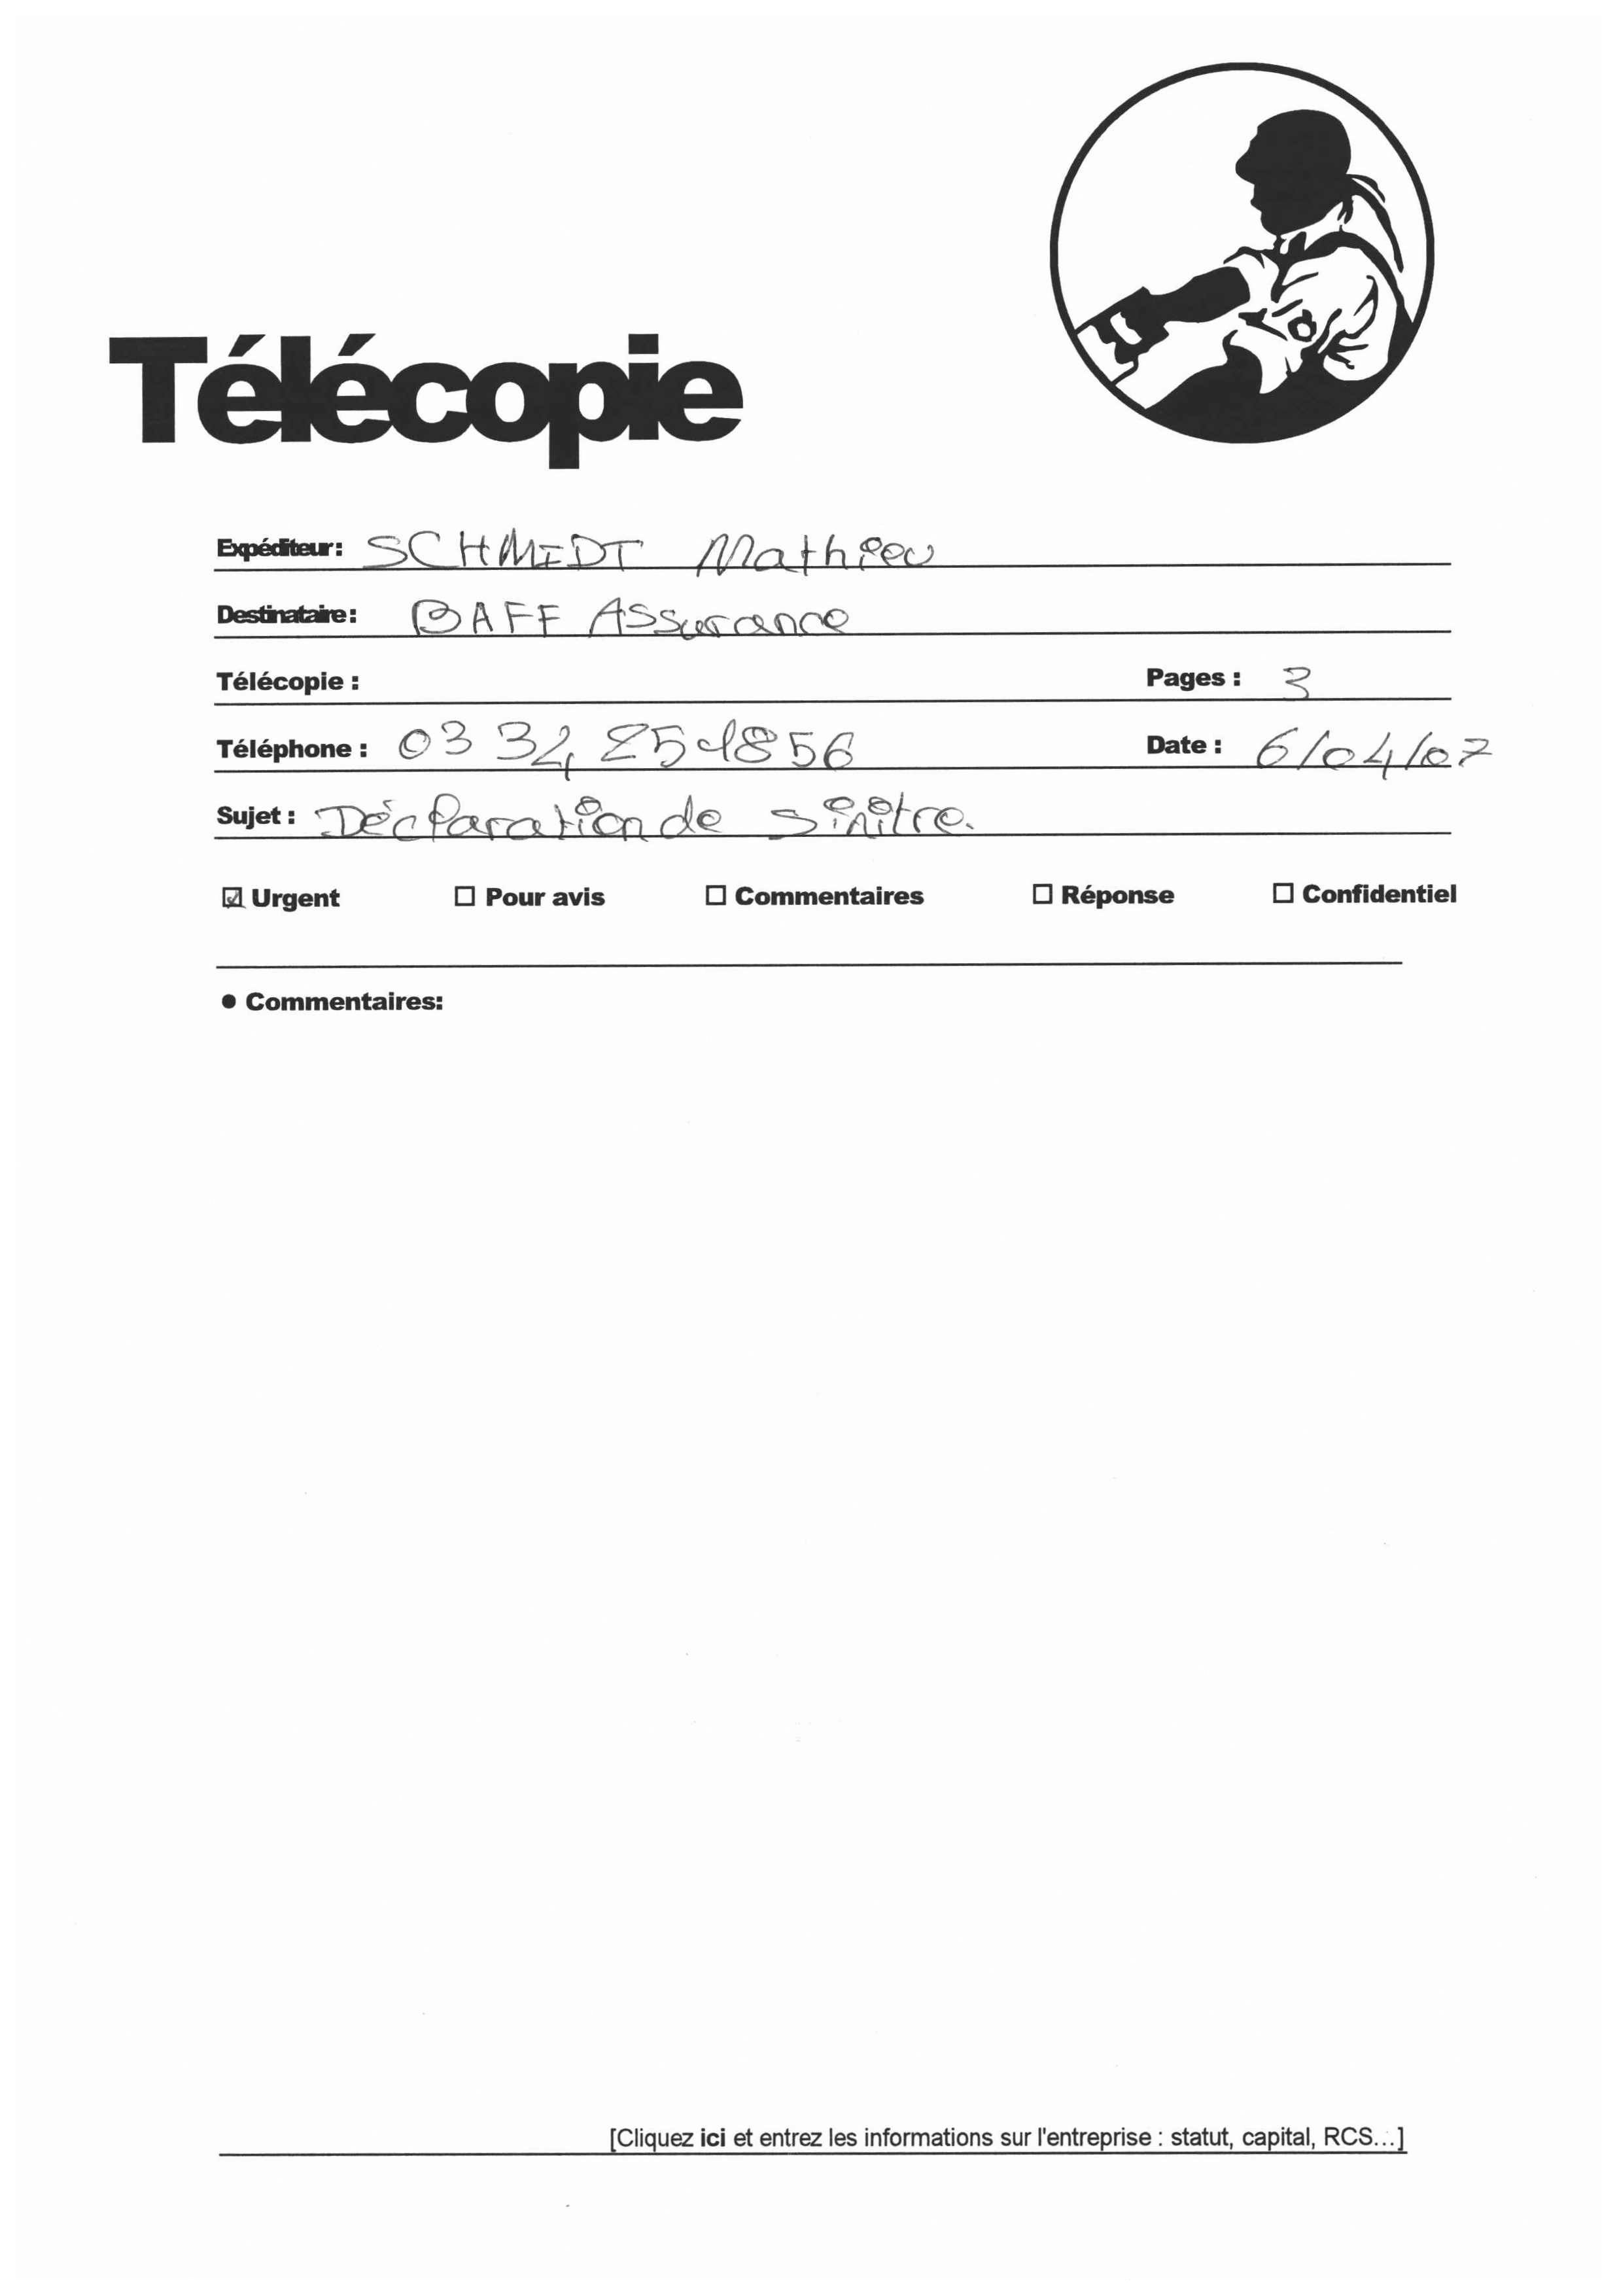 Télécopie
Expéditeur: SCHMIDT Mathieu
Destinataire: BAFF Assurance
Télécopie :
Pages : 3
Téléphone : 03 34 25 18 56
Date : 6/04/07
Sujet : Déclaration de sinitre.
☑ Urgent ☐ Pour avis ☐ Commentaires ☐ Réponse ☐ Confidentiel
● Commentaires:
[Cliquez ici et entrez les informations sur l'entreprise : statut, capital, RCS...]